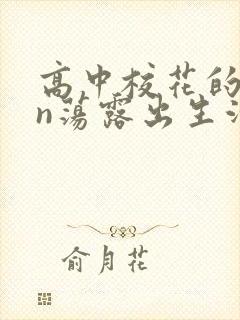 高中校花的
n荡露出生
俞月花